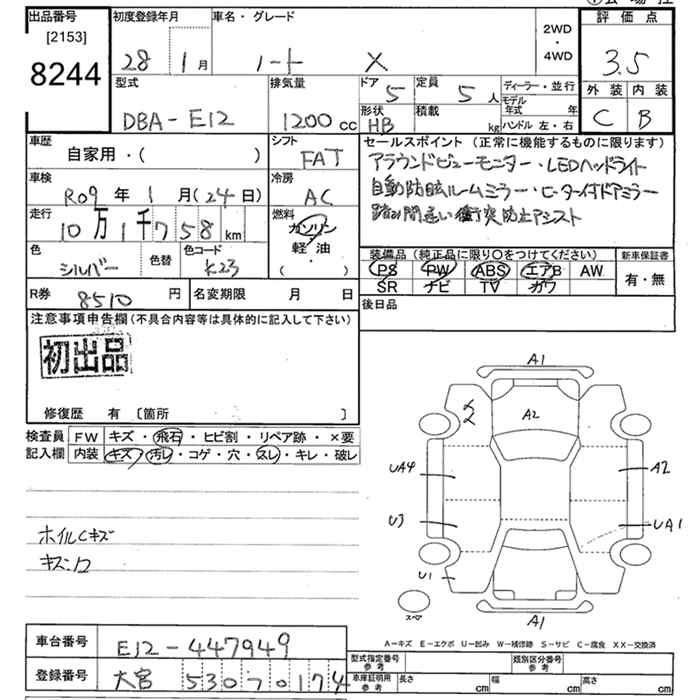 出品番号 [2153] 8244
初度登録年月 28 1月
車名・グレード ノート X
2WD・4WD
評価点 3.5
外装 内装
C B
型式 DBA-E12
排気量 1200cc
ドア 5
定員 5人
ディーラー・並行
モデル年式 年
形状 HB
積載 kg
ハンドル 左・右
車歴 自家用・( )
シフト FAT
セールスポイント (正常に機能するものに限ります)
アラウンドビューモニター・LEDヘッドライト
自動防眩ルームミラー・ヒーター付ドアミラー
踏み間違い衝突防止アシスト
車検 R09年1月(24日)
冷房 AC
走行 10万1千758km
燃料 ガソリン
軽油
・( )
色 シルバー
色替
色コード K23
装備品 (純正品に限り○をつけてください)
PS PW ABS エアB AW
SR ナビ TV カワ
新車保証書
有・無
R券 8510円
名変期限 月 日
後日品
注意事項申告欄(不具合内容等は具体的に記入して下さい)
初出品
修復歴 有 〔箇所 〕
検査員記入欄
FW キズ・飛石・ヒビ割・リペア跡・×要
内装 キズ・汚レ・コゲ・穴・スレ・キレ・破レ
ホイルCキズ
A1
A2
UA4 A2
U3 UA1
U1
スペア
A1
A-キズ E-エクボ U-凹み W-補修跡 S-サビ C-腐食 XX-交換済
車台番号 E12-447949
登録番号 大宮 530 70174
型式指定番号 参考
類別区分番号 参考
車庫証明用 参考
長さ cm 幅 cm 高さ cm